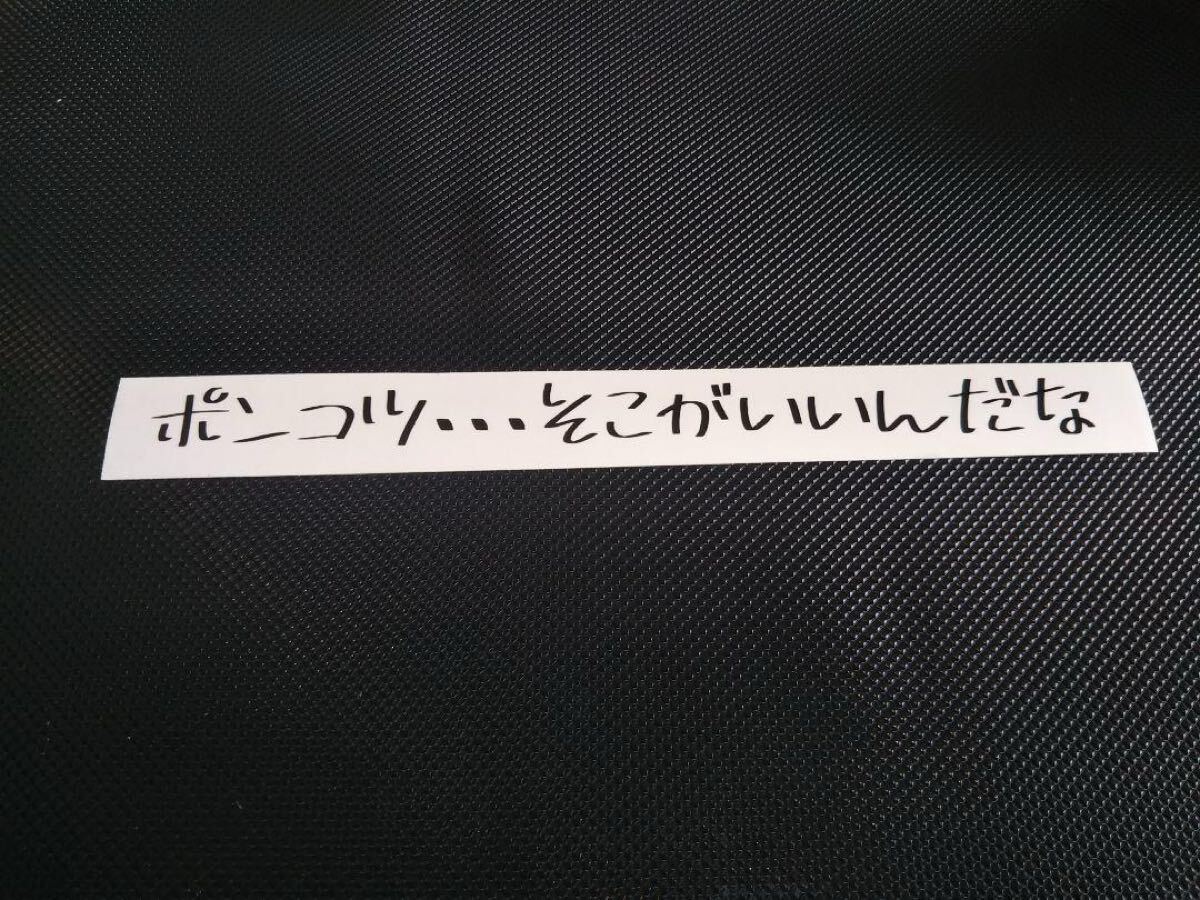 ポンコツ・・・そこがいいんだな